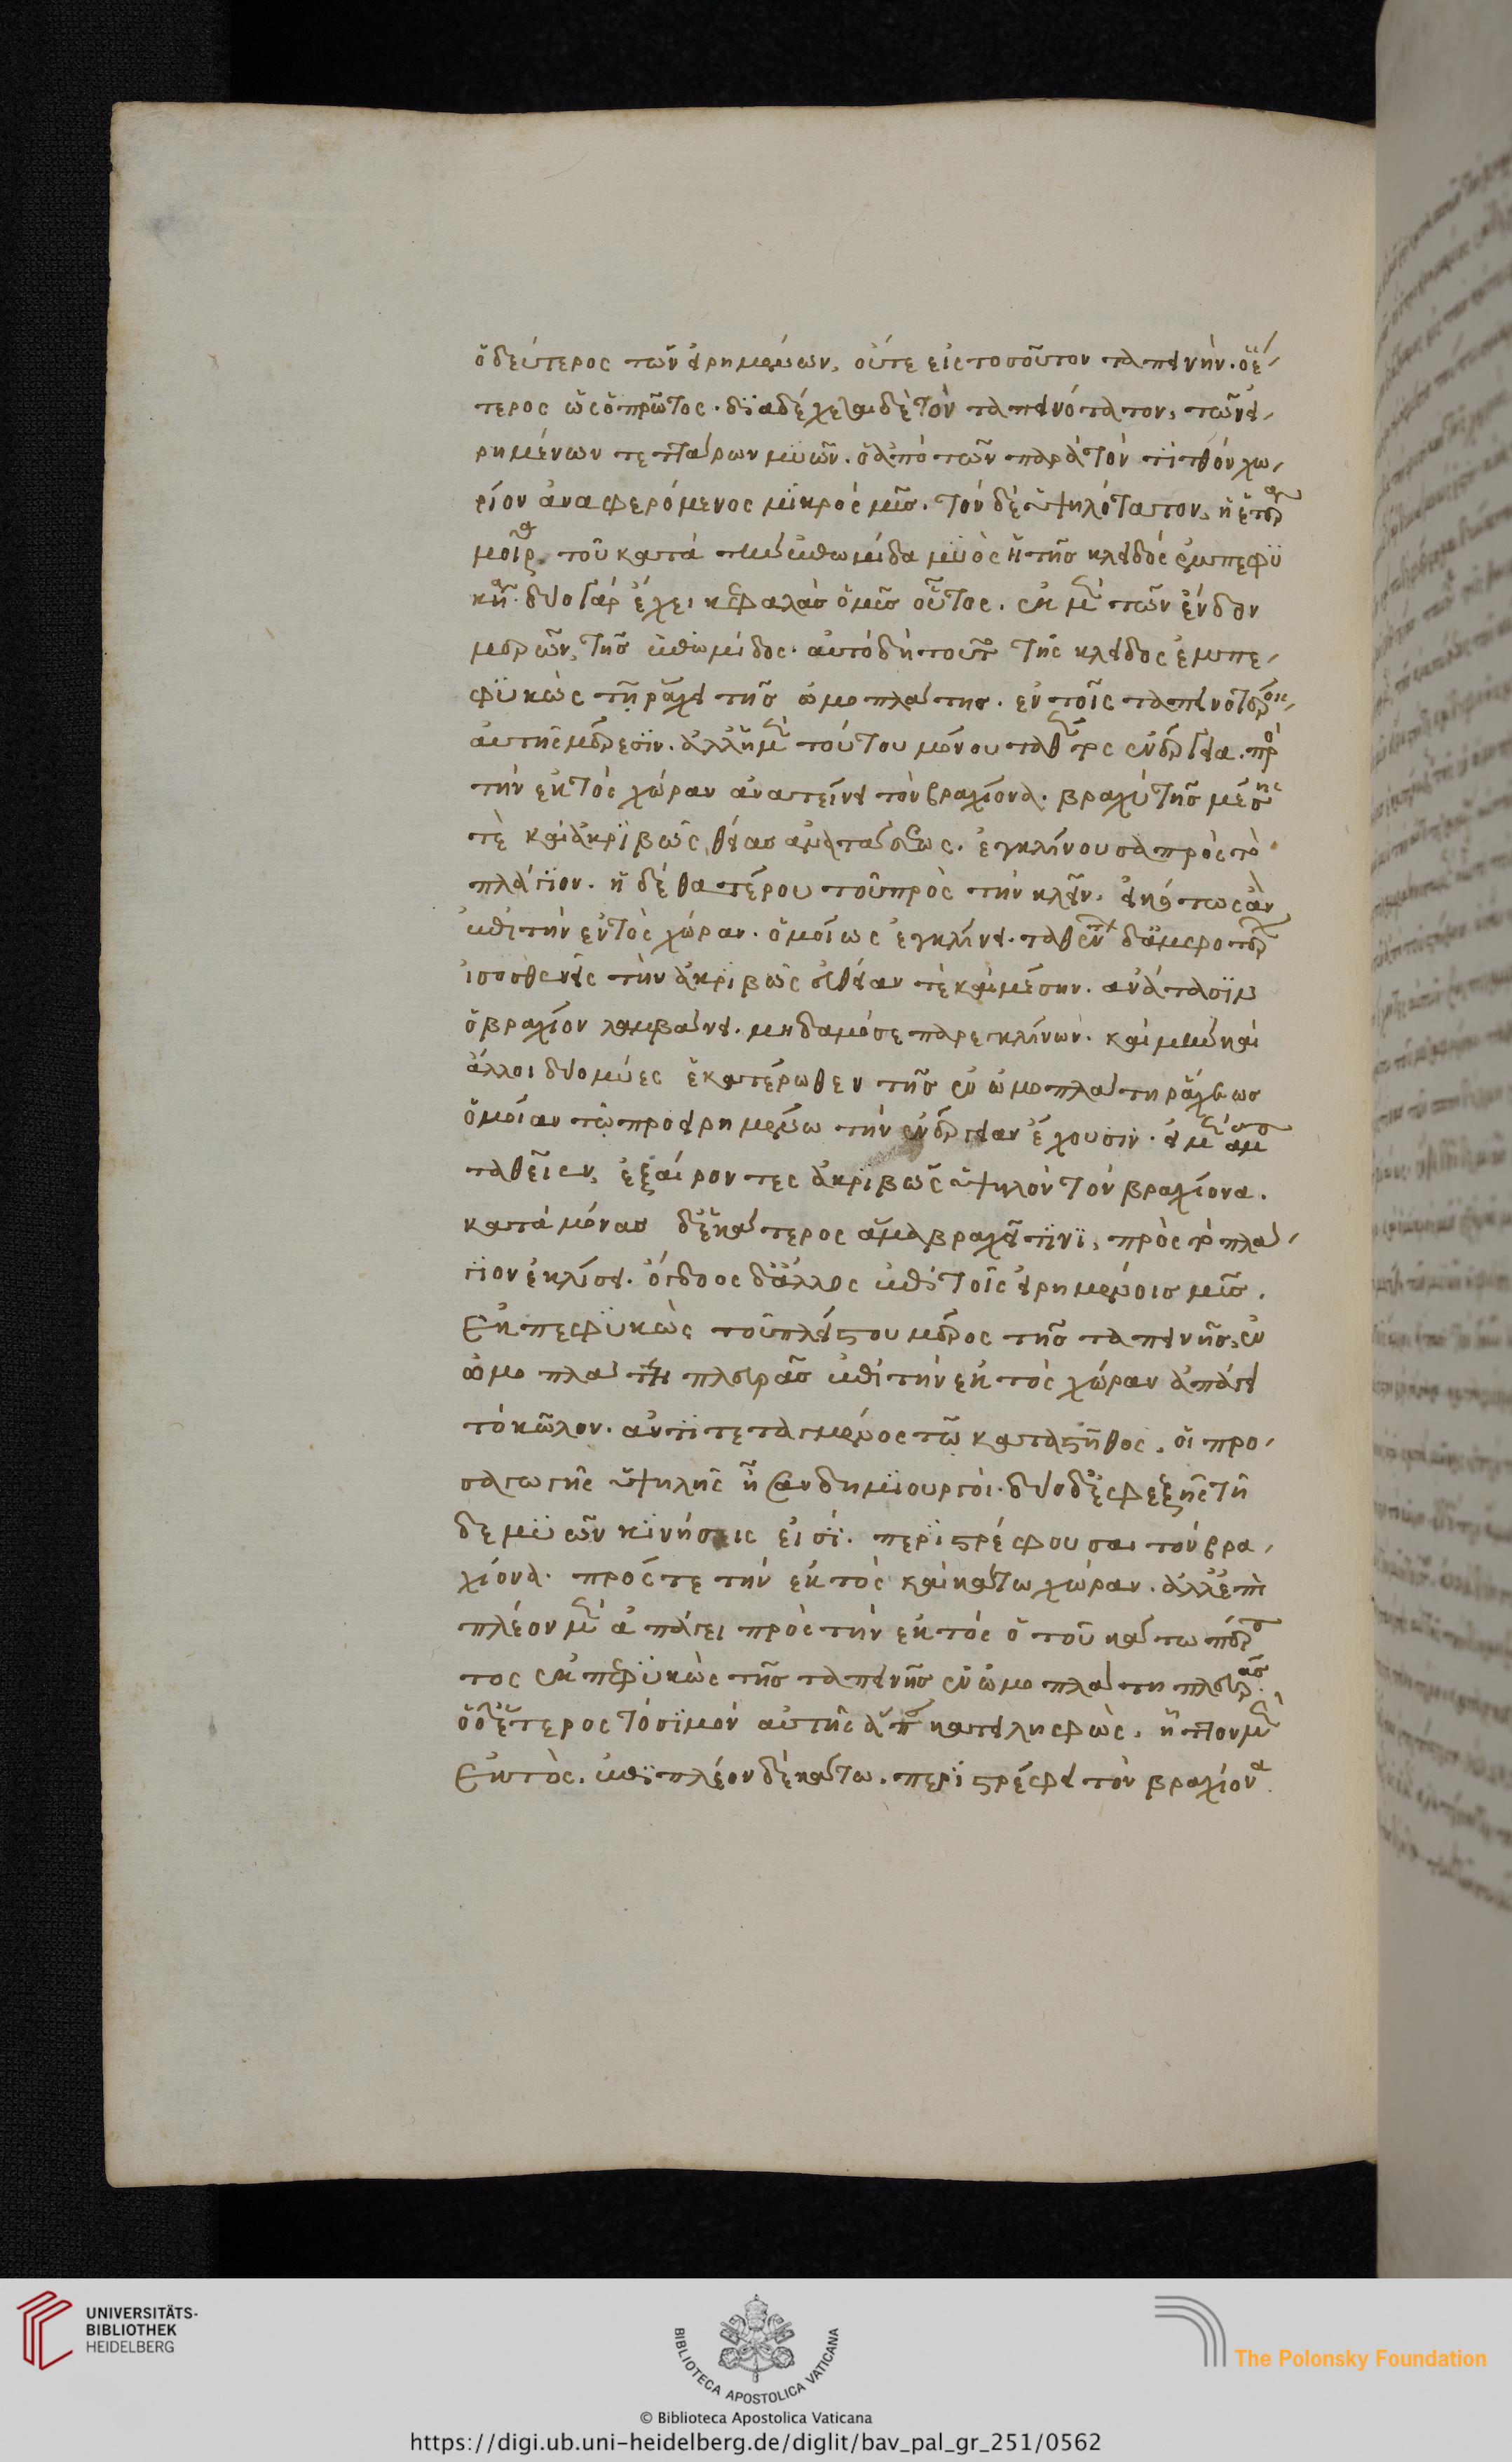 ὁ δεύτερος τῶν εἰρημένων, οὔτε εἰς τοσοῦτον ταπεινὴν. ὁ ἕ-
τερος ὡς ὁ πρῶτος. διαδέχεται δὲ τὸν ταπεινότατον, τῶν εἰ-
ρημένων τεττάρων μυῶν. ὁ ἀπὸ τῶν παρὰ τὸν τιτθὸν χω-
ρίον ἀναφερόμενος μικρὸς μῦς. τὸν δὲ ὑψηλότατον, ἡ ἑτέρα
μοῖρα τοῦ κατὰ τὴν ἐπωμίδα μυὸς ἡ τῆς κλειδὸς ἐμπεφυ
κυῖα. δύο γὰρ ἔχει κεφαλὰς ὁ μῦς οὗτος. ἐκ μὲν τῶν ἔνδον
μερῶν, τῆς ἐπωμίδος. αὐτὸ δὴ τοῦτο τῆς κλειδὸς ἐμπε-
φυκὼς τῇ ῥάχει τῆς ὠμοπλάτης. ἐν τοῖς ταπεινοτέροις
αὐτῆς μέρεσιν. ἀλλ' ἡ μὲν τούτου μόνου ταθέντος ἐνέργεια. πρὸς
τὴν ἐκτὸς χώραν ἀνατείνει τὸν βραχίονα. βραχὺ τῆς μέσης
τὲ καὶ ἀκριβῶς εὐθείας ἀνατάσεως. ἐγκλίνουσα πρὸς τὸ
πλάγιον. ἡ δὲ θατέρου τοῦ πρὸς τὴν κλεῖν. εἰκότως ἂν
ἐπὶ τὴν ἐντὸς χώραν. ὁμοίως ἐγκλίνει. ταθέντων δ' ἀμφοτέρων
ἰσοσθενῶς τὴν ἀκριβῶς εὐθεῖαν τὲ καὶ μέσην. ἀνάτασιν
ὁ βραχίον λαμβάνει. μηδαμόσε παρεγκλίνων. καὶ μὴν καὶ
ἄλλοι δύο μύες ἑκατέρωθεν τῆς ἐν ὠμοπλάτῃ ῥάχεως
ὁμοίαν τῷ προειρημένῳ τὴν ἐνέργειαν ἔχουσιν. εἰ μὲν ἅμα
ταθεῖεν, ἐξαίροντες ἀκριβῶς ὑψηλὸν τὸν βραχίονα.
κατὰ μόνας δ' ἑκάτερος ἅμα βραχεῖ τινι, πρὸς τὸ πλά-
γιον ἐκλίσει. ὄγδοος δ' ἄλλος ἐπὶ τοῖς εἰρημένοις μῦς.
ἐκπεφυκὼς τοῦ πλείστου μέρος τῆς ταπεινῆς, ἐν
ὠμοπλάτῃ πλευρᾶς ἐπὶ τὴν ἐκτὸς χώραν ἀπάγει
τὸ κῶλον. ἀντιτεταγμένος τῷ κατὰ στῆθος. οἱ προ-
σαγωγῆς ὑψηλῆς ἦσαν δημιουργοί. δύο δ' ἐφεξῆς τῇ
δε μυῶν κινήσεις εἰσί. περιστρέφουσαι τὸν βρα-
χίονα. πρός τε τὴν ἐκτὸς καὶ κάτω χώραν. ἀλλ' ἐπὶ
πλέον μὲν ἀπάγει πρὸς τὴν ἐκτὸς ὁ τοῦ κάτω πέρα
τος ἐκπεφυκὼς τῆς ταπεινῆς ἐν ὠμοπλάτῃ πλευρᾶς.
ὁ δ' ἕτερος τὸ σιμὸν αὐτῆς ἅπαν κατειληφὼς. ἧττον μὲν
ἐκτὸς. ἐπὶ πλέον δὲ κάτω. περιστρέφει τὸν βραχίονα
UNIVERSITÄTS-
BIBLIOTHEK
HEIDELBERG
BIBLIOTECA APOSTOLICA VATICANA
© Biblioteca Apostolica Vaticana
The Polonsky Foundation
https://digi.ub.uni-heidelberg.de/diglit/bav_pal_gr_251/0562